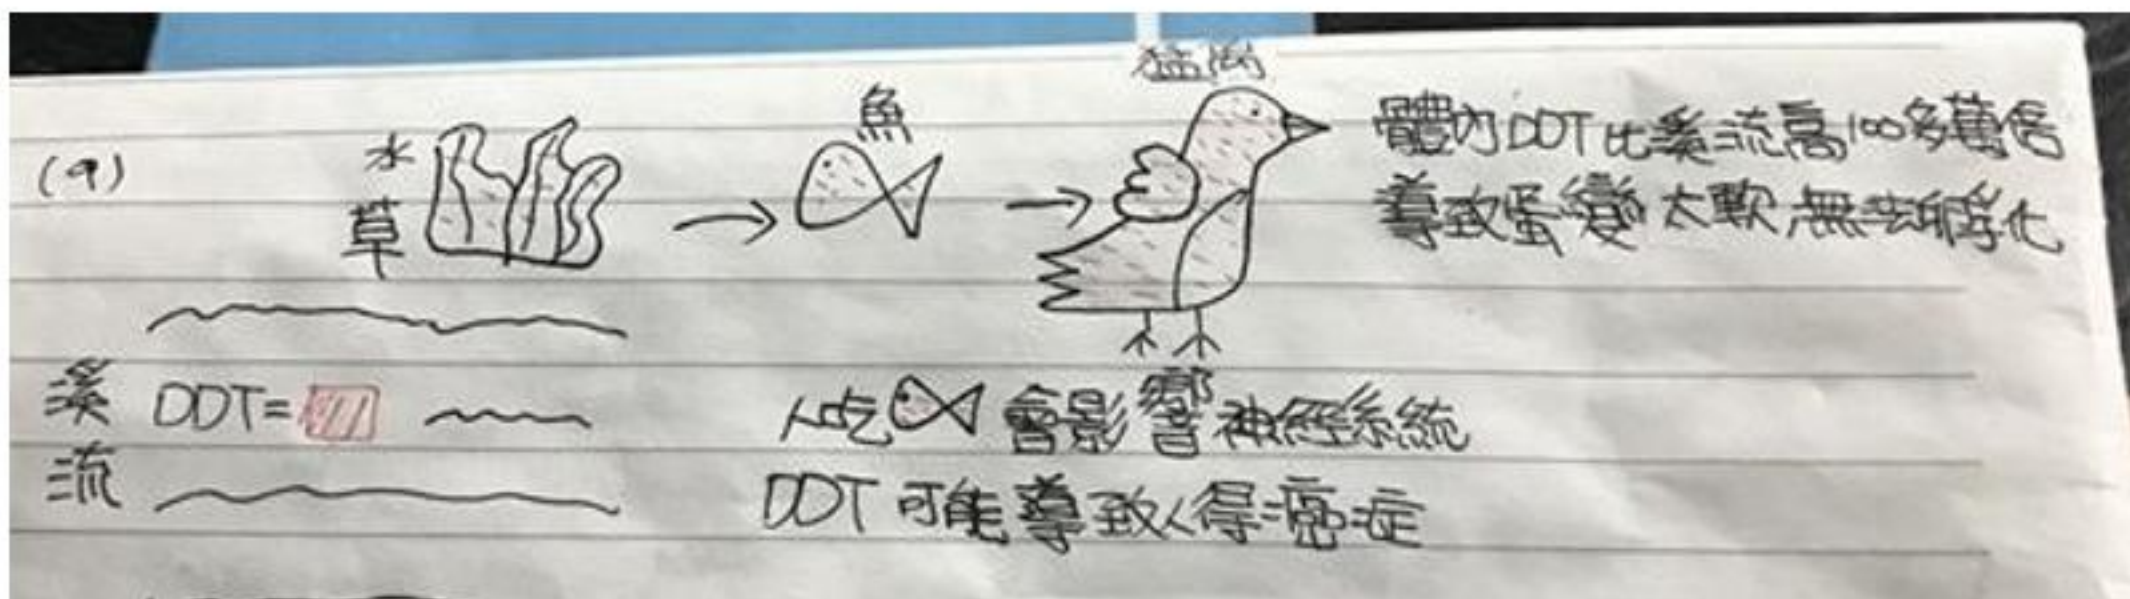 猛禽
魚
(9)
水草
體內DDT比溪流高100多萬倍
導致蛋變太軟無法孵化
溪流
DDT=
人吃 會影響神經系統
DDT可能導致人得癌症